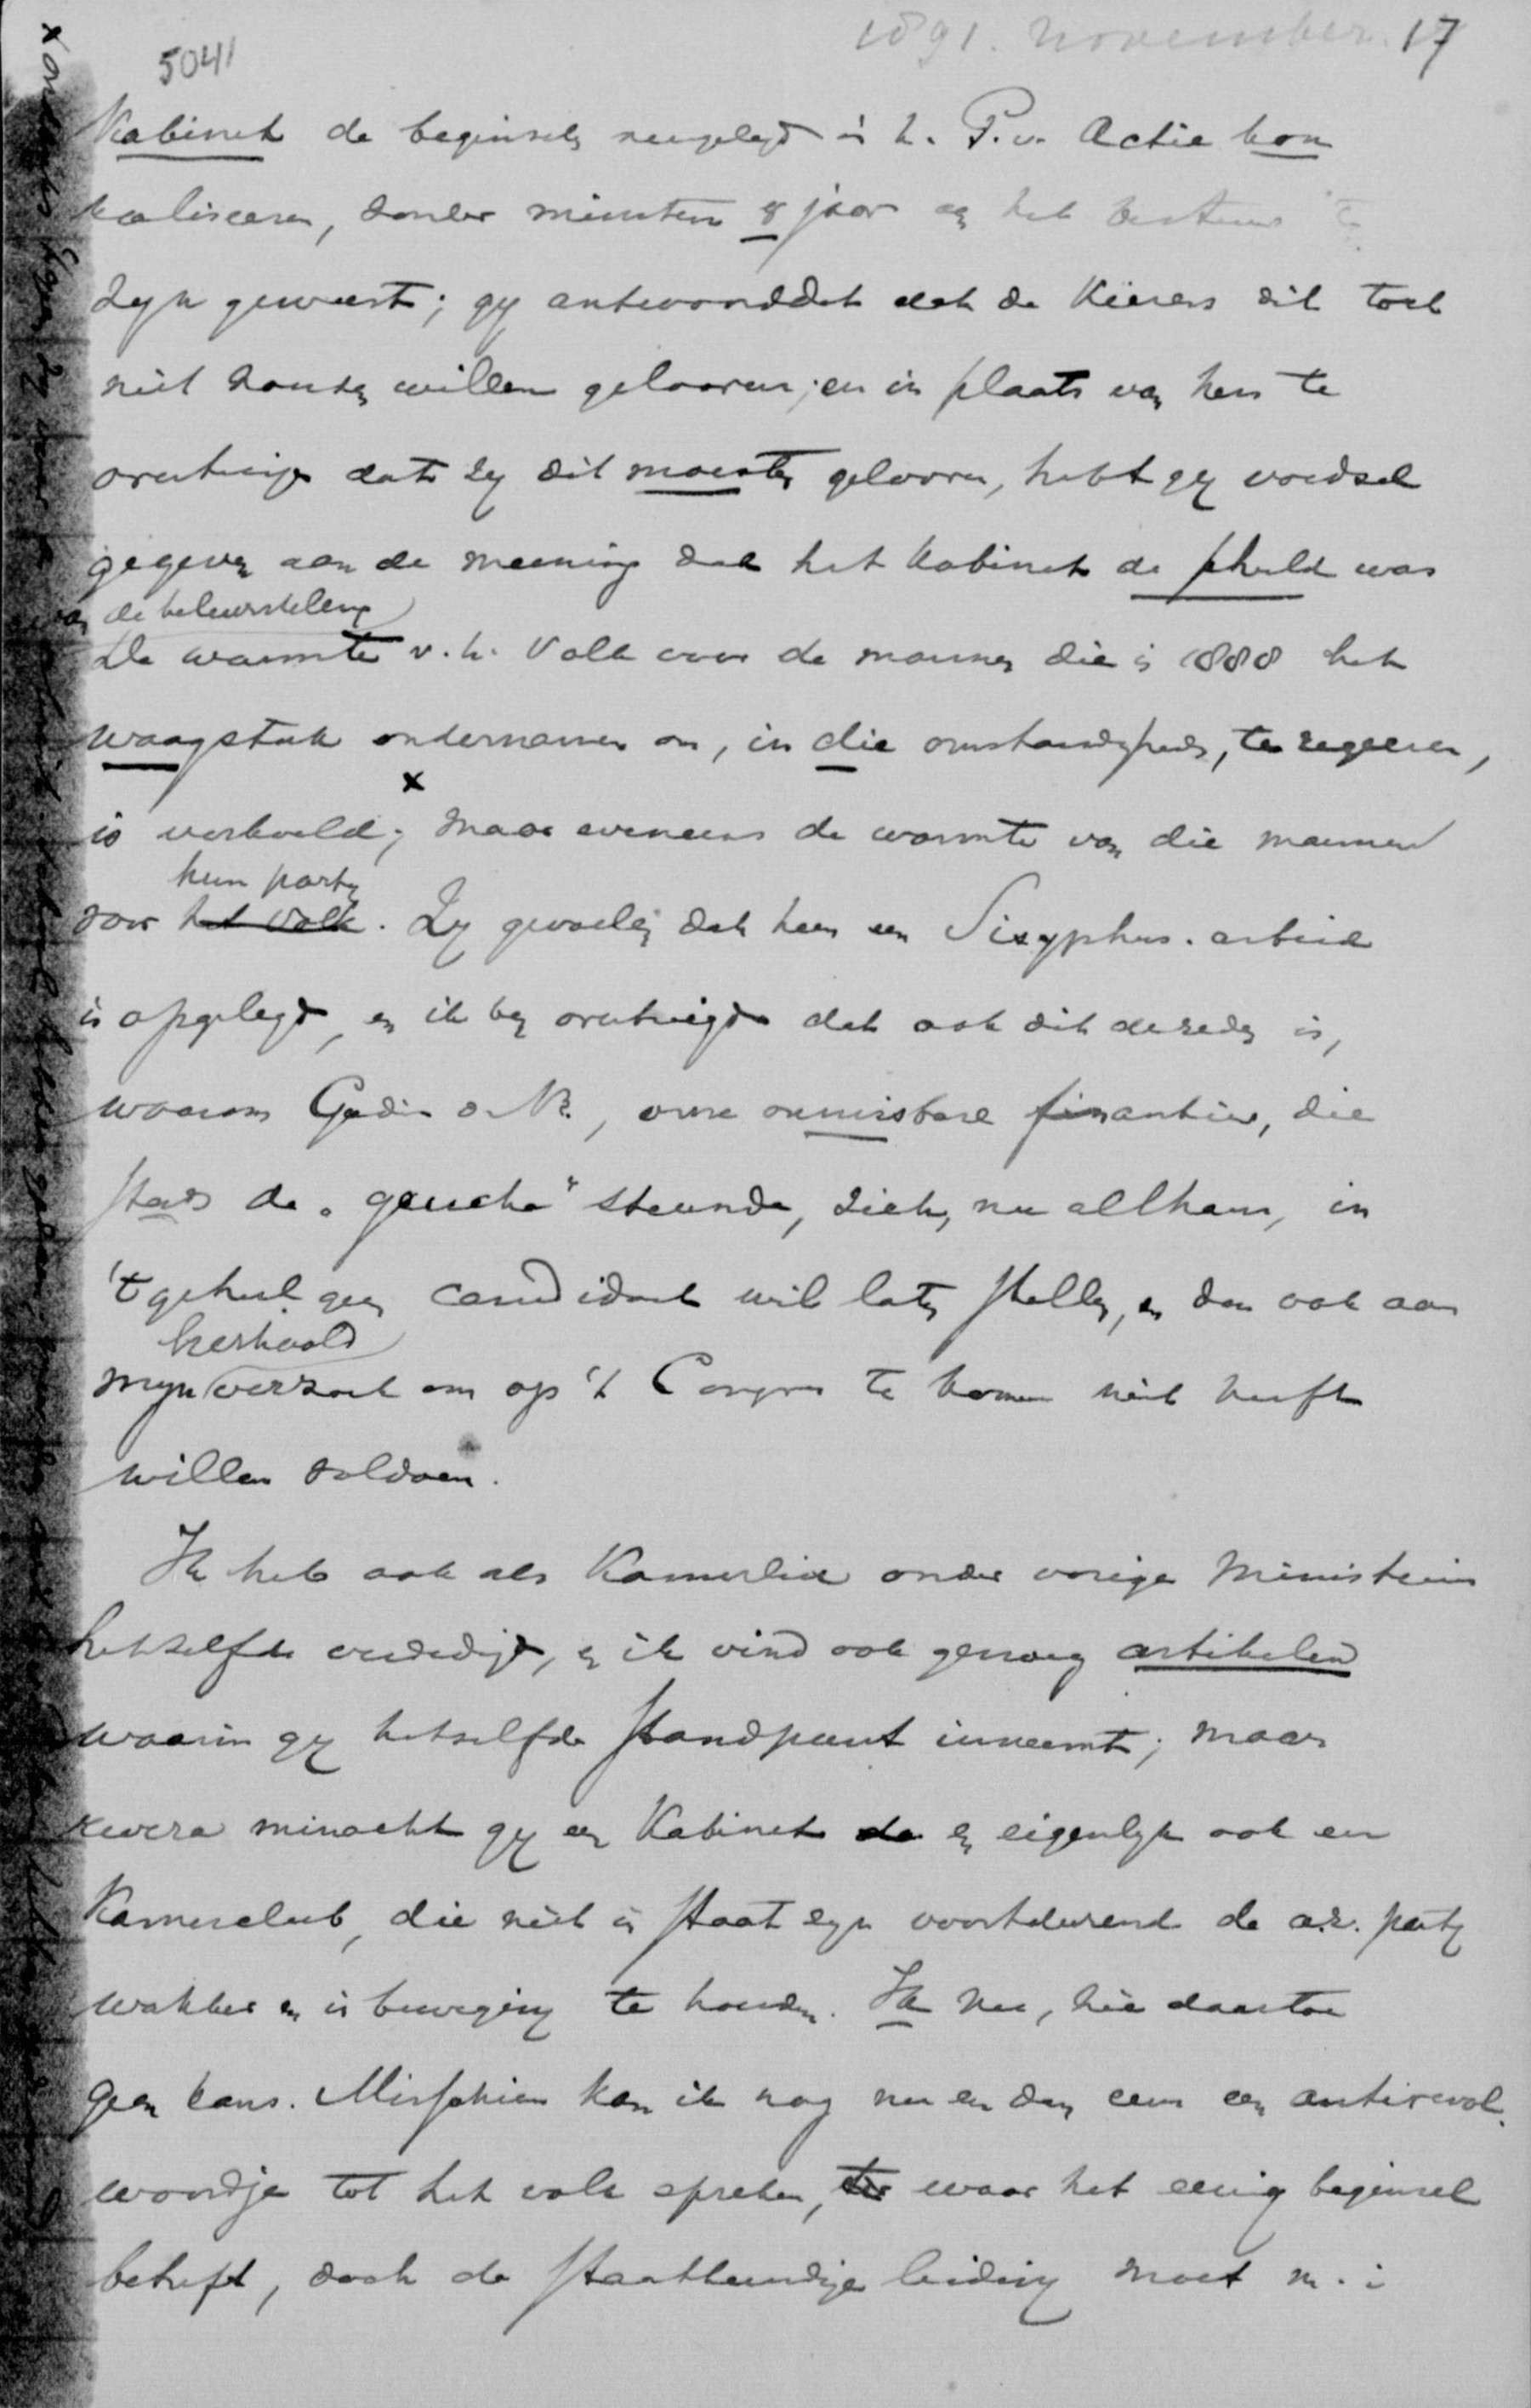 1891. November. 17
5041
Kabinet de beginselen neergelegd in h. P. v. Actie kon
realiseeren, zonder minstens 8 jaar aan het bestuur te
zyn geweest; gy antwoorddet dat de Kiezers dit toch
niet zouden willen gelooven; en in plaats van hen te
overtuigen dat zy dit moesten gelooven, hebt gy voedsel
gegeven aan de meening dat het Kabinet de schuld was
van de teleurstelling
De warmte v. h. Volk voor de mannen die in 1888 het
waagstuk ondernamen om, in die omstandigheden, te regeeren,
x
is verkoeld; maar eveneens de warmte van die mannen
hun party
voor het volk. Zy gevoelen dat hen een Sisyphus-arbeid
is opgelegd, en ik ben overtuigd dat ook dit de reden is,
waarom Godin de B., onze onmisbare financier, die
steeds de "gauche" steunde, zich, nu althans, in
't geheel geen candidaat wil laten stellen, en dan ook aan
herhaald
myn verzoek om op 't Congres te komen niet heeft
willen voldoen.
Ik heb ook als Kamerlid onder vorige Ministeries
hetzelfde verdedigd, en ik vind ook genoeg artikelen
waarin gy hetzelfde standpunt inneemt; maar
revera minacht gy een Kabinet en eigenlyk ook een
Kamerclub, die niet in staat zyn voortdurend de a.r. party
wakker en in beweging te houden. Ik nu, zie daartoe
geen kans. Misschien kan ik nog nu en dan eens een antirevol.
woordje tot het volk spreken, waar het eenig beginsel
betreft, doch de staatkundige leiding moet m. i